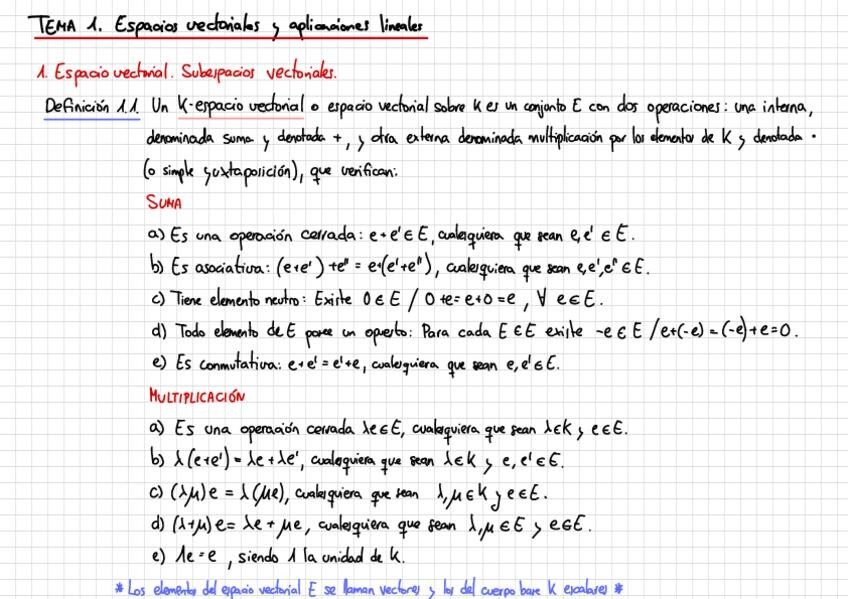 TEMA 1. Espacios vectoriales y aplicaciones lineales
1. Espacio vectorial. Subespacios vectoriales.
Definición 1.1. Un K-espacio vectorial o espacio vectorial sobre K es un conjunto E con dos operaciones: una interna,
denominada suma y denotada +, y otra externa denominada multiplicación por los elementos de K y denotada ·
(o simple yuxtaposición), que verifican:
SUMA
a) Es una operación cerrada: e+e' ∈ E, cualesquiera que sean e,e' ∈ E.
b) Es asociativa: (e+e')+e'' = e+(e'+e''), cualesquiera que sean e,e',e'' ∈ E.
c) Tiene elemento neutro: Existe 0 ∈ E / 0+e = e+0 = e, ∀ e∈E.
d) Todo elemento de E posee un opuesto: Para cada E ∈ E existe -e ∈ E / e+(-e) = (-e)+e = 0.
e) Es conmutativa: e+e' = e'+e, cualesquiera que sean e,e' ∈ E.
MULTIPLICACIÓN
a) Es una operación cerrada λe∈E, cualesquiera que sean λ∈K y e∈E.
b) λ(e+e') = λe+λe', cualesquiera que sean λ∈K y e,e'∈E.
c) (λμ)e = λ(μe), cualesquiera que sean λ,μ∈K y e∈E.
d) (λ+μ)e = λe+μe, cualesquiera que sean λ,μ∈E y e∈E.
e) 1e = e, siendo 1 la unidad de K.
* Los elementos del espacio vectorial E se llaman vectores y los del cuerpo base K escalares *